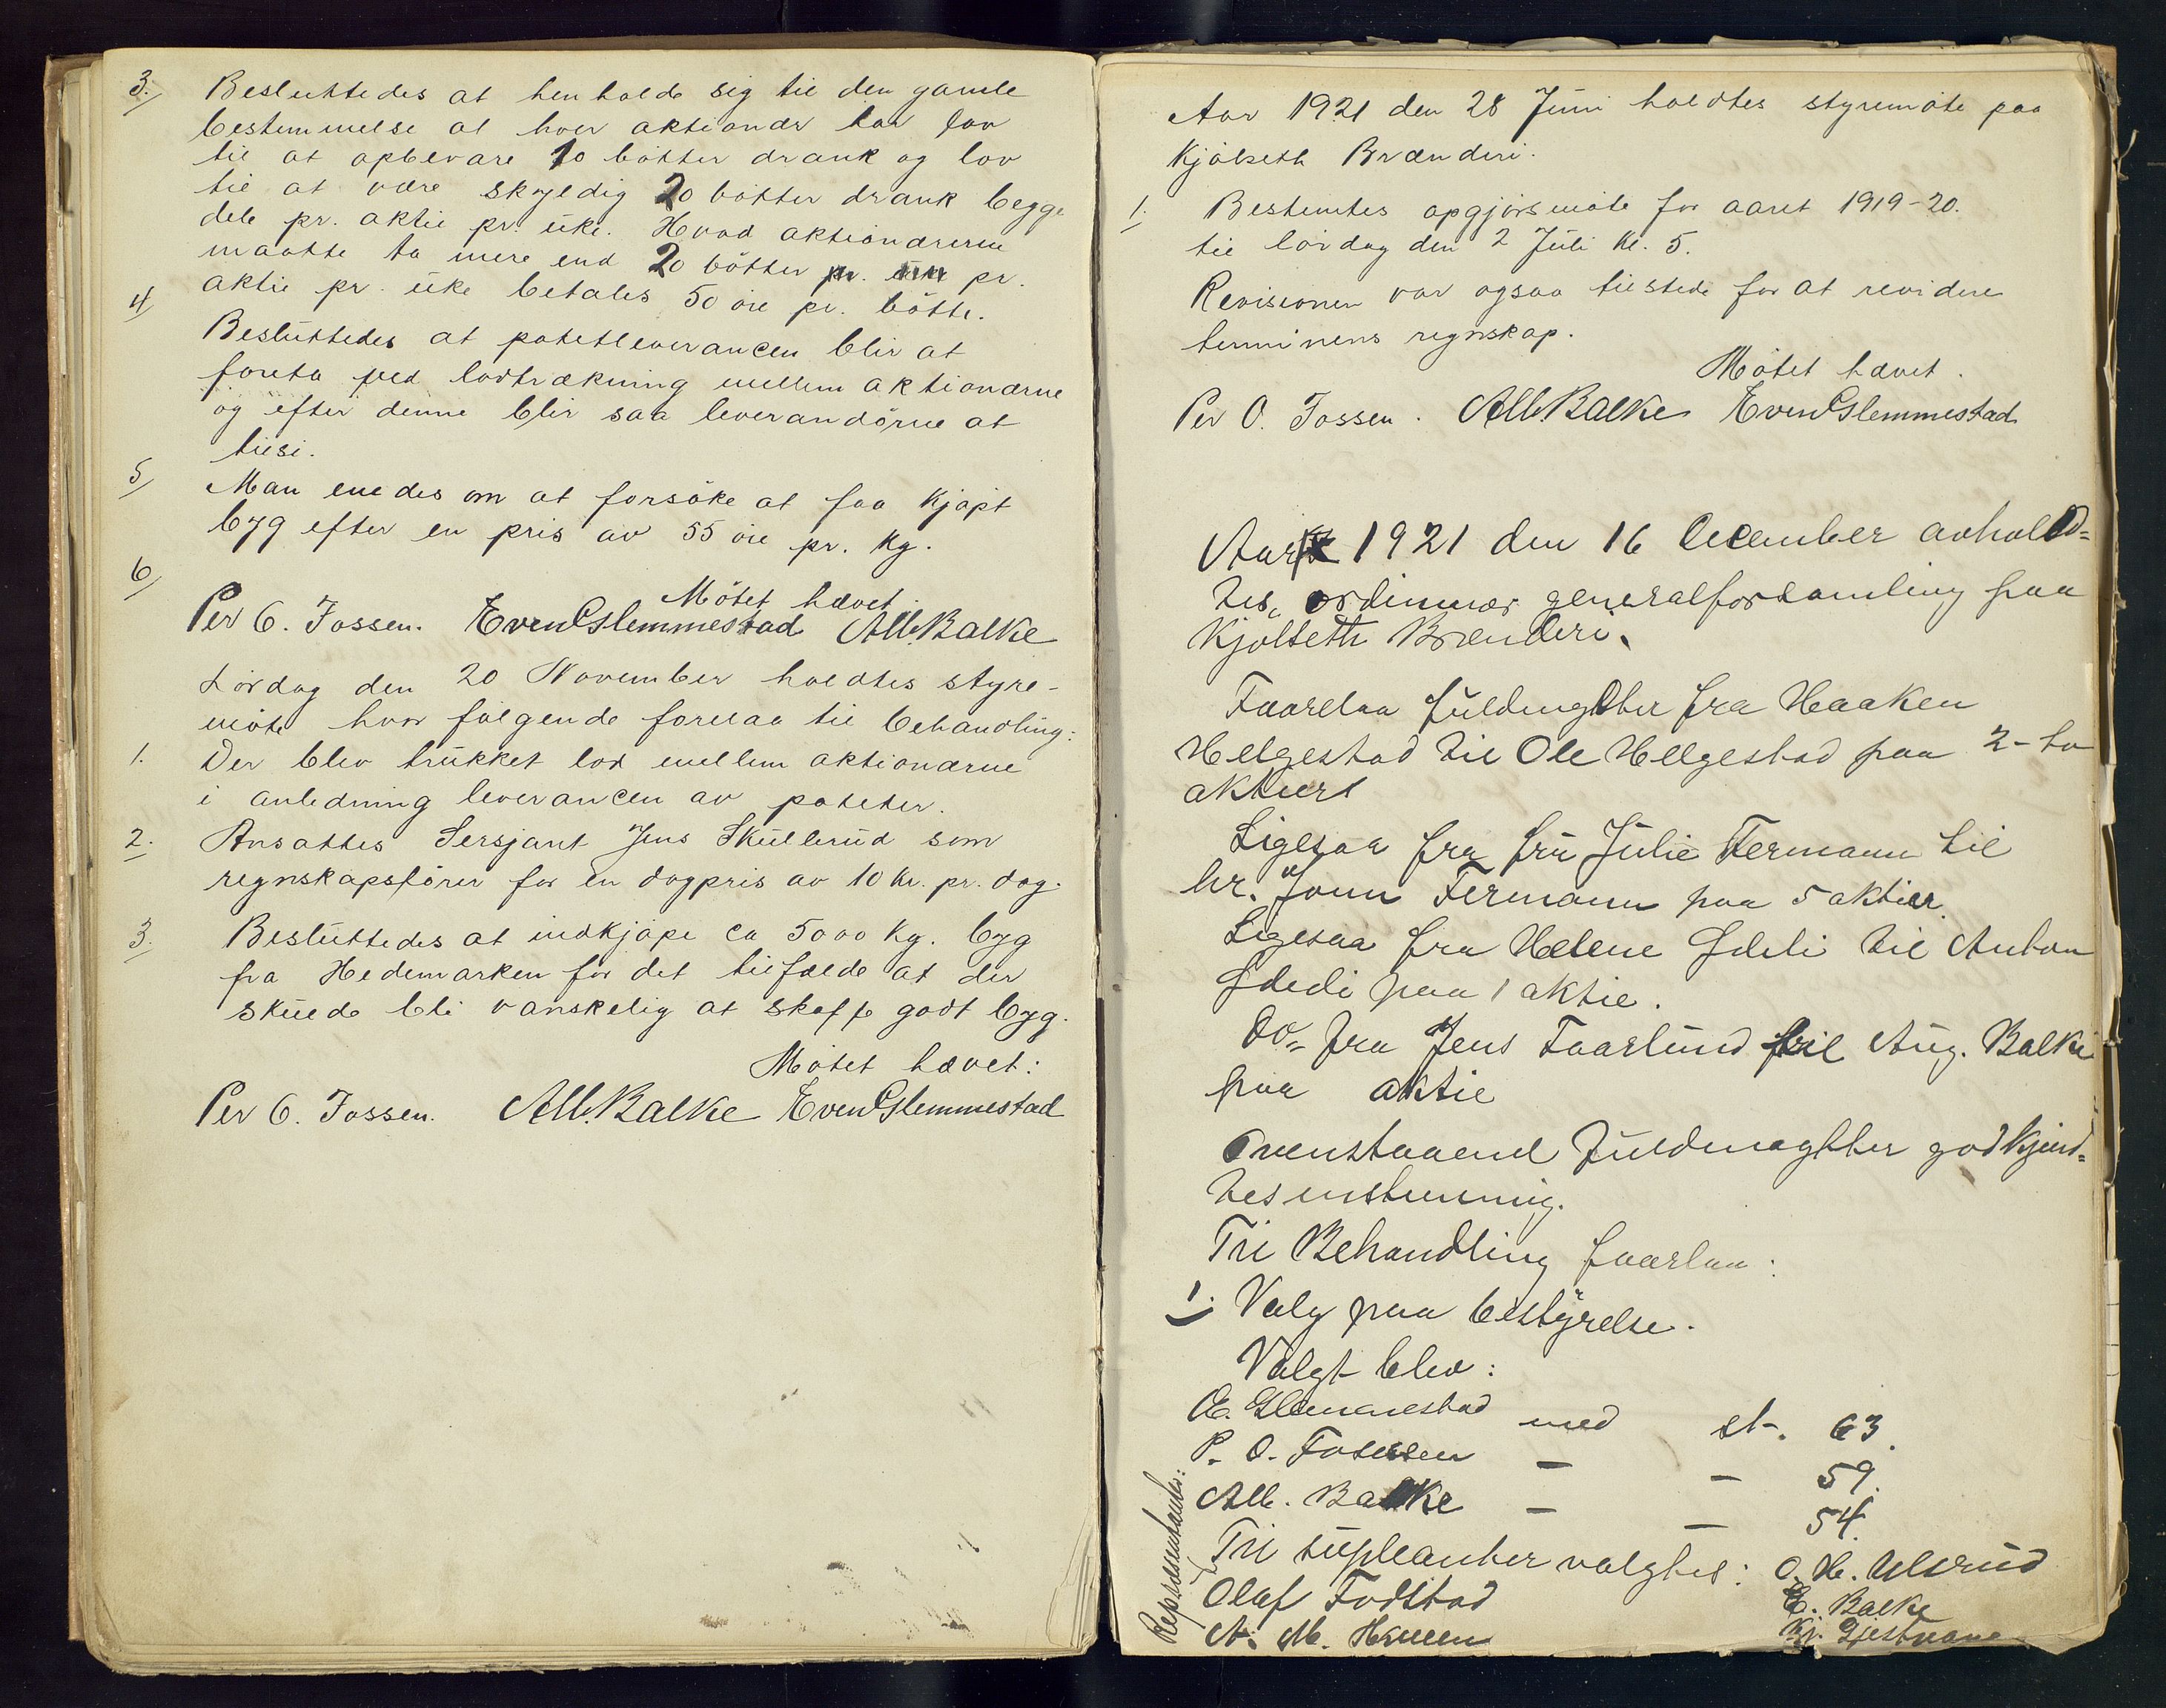 3. Besluttedes at henholde sig til den gamle
bestemmelse at hver aktionær har lov
til at opbevare 10 bøtter drank og lov
til at være skyldig 20 bøtter drank begge
dele pr. aktie pr. uke. Hvad aktionærerne
maatte ta mere end 20 bøtter pr. pr.
aktie pr. uke betales 50 øre pr. bøtte.
4) Besluttedes at potetleverancen blir at
foreta ved lodtrækning mellem aktionærne
og efter denne blir saa leverandørne at
tilsi.
5) Man enedes om at forsøke at faa kjøpt
byg efter en pris av 55 øre pr. kg.
6)
Møtet hævet.
Per O. Fossen. Even Glemmestad Alb. Balke
Lørdag den 20 November holdtes styre-
møte hvor følgende forelaa til behandling:
1. Der blev trukket lod mellem aktionærne
i anledning leverancen av poteter.
2. Ansattes Sersjant Jens Skullerud som
regnskapsfører for en dagpris av 10 kr. pr. dag.
3. Besluttedes at indkjøpe ca 5000 kg. byg
fra Hedemarken for det tilfælde at der
skulde bli vanskelig at skaffe godt byg.
Møtet hævet:
Per O. Fossen. Alb. Balke Even Glemmestad
Aar 1921 den 28 Juni holdtes styremøte paa
Kjølseth Brænderi.
1. Bestemtes opgjørsmøte for aaret 1919-20.
til lørdag den 2 Juli kl. 5.
Revisionen var ogsaa tilstede for at revidere
terminens regnskap.
Møtet hævet.
Per O. Fossen. Alb. Balke Even Glemmestad
Aar 1921 den 16 December avhold=
tes ordinnær generalforsamling paa
Kjølseth Brænderi.
Faarelaa fuldmagther fra Haaken
Helgestad til Ole Helgestad paa 2-to
aktiers
Ligesaa fra fru Julie Fermann til
hr. Fermann paa 5 aktier.
Ligesaa fra Helene til Anton
paa 1 aktie.
Do= fra Jens Faarlund til Aug. Balke
paa aktie
Ovenstaaend fuldmagther godkjend=
tes enstemmig.
Til Behandling faarlaa:
1. Valg paa bestyrelse.
Valgt blev:
E. Glemmestad med st. 63.
P. O. Fossen - - 59.
Alb. Balke - - 54.
Til supleanter valgtes: O. H. Ullerud
Representanter:
Olaf Fodstad E. Balke
A. M. Kr. Gjestvang